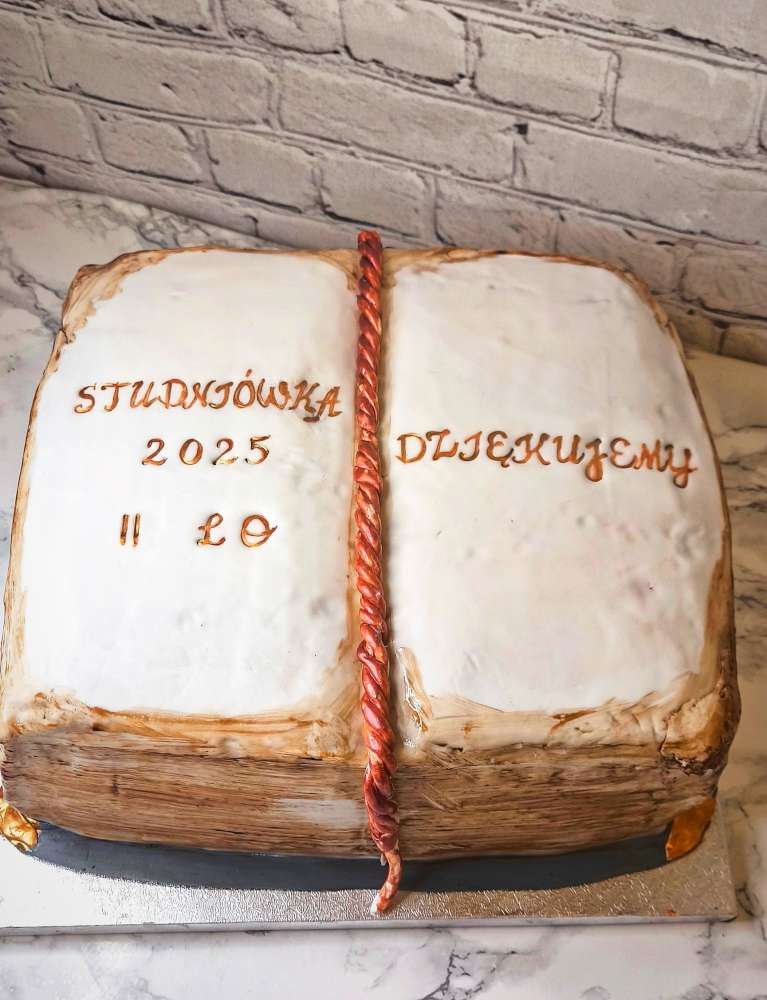 STUDNIÓWKA
2025
II LO
DZIĘKUJEMY